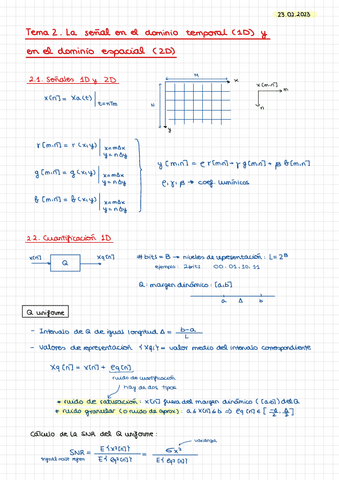 23.02.2023
Tema 2. La señal en el dominio temporal (1D) y
en el dominio espacial (2D)
2.1. Señales 1D y 2D
x[n] = xa(t) | t=nTm
M
x
N
y
x[m,n]
m
n
r[m,n] = r(x,y) | x=mΔx y=nΔy
g[m,n] = g(x,y) | x=mΔx y=nΔy
b[m,n] = b(x,y) | x=mΔx y=nΔy
y[m,n] = ρ r[m,n] + γ g[m,n] + β b[m,n]
ρ, γ, β → coef. lumínicos
2.2. Cuantificación 1D
x[n] Q xq[n]
# bits = B → niveles de representación: L = 2^B
ejemplo: 2bits 00, 01, 10, 11
Q: margen dinámico: [a,b]
a Δ b
Q uniforme
- Intervalo de Q de igual longitud Δ = (b-a)/L
- Valores de representación {xqi} = valor medio del intervalo correspondiente
xq[n] = x[n] + eq[n]
ruido de cuantificación
hay de dos tipos
* ruido de saturación: x[n] fuera del margen dinámico ([a,b]) del Q
* ruido granular (o ruido de aprox): a≤x[n]≤b ⇒ eq[n]∈[-Δ/2, Δ/2]
Cálculo de la SNR del Q uniforme:
varianza
SNR = E{x²[n]} / E{eq²[n]} = σx² / E{eq²[n]}
signal noise ratio